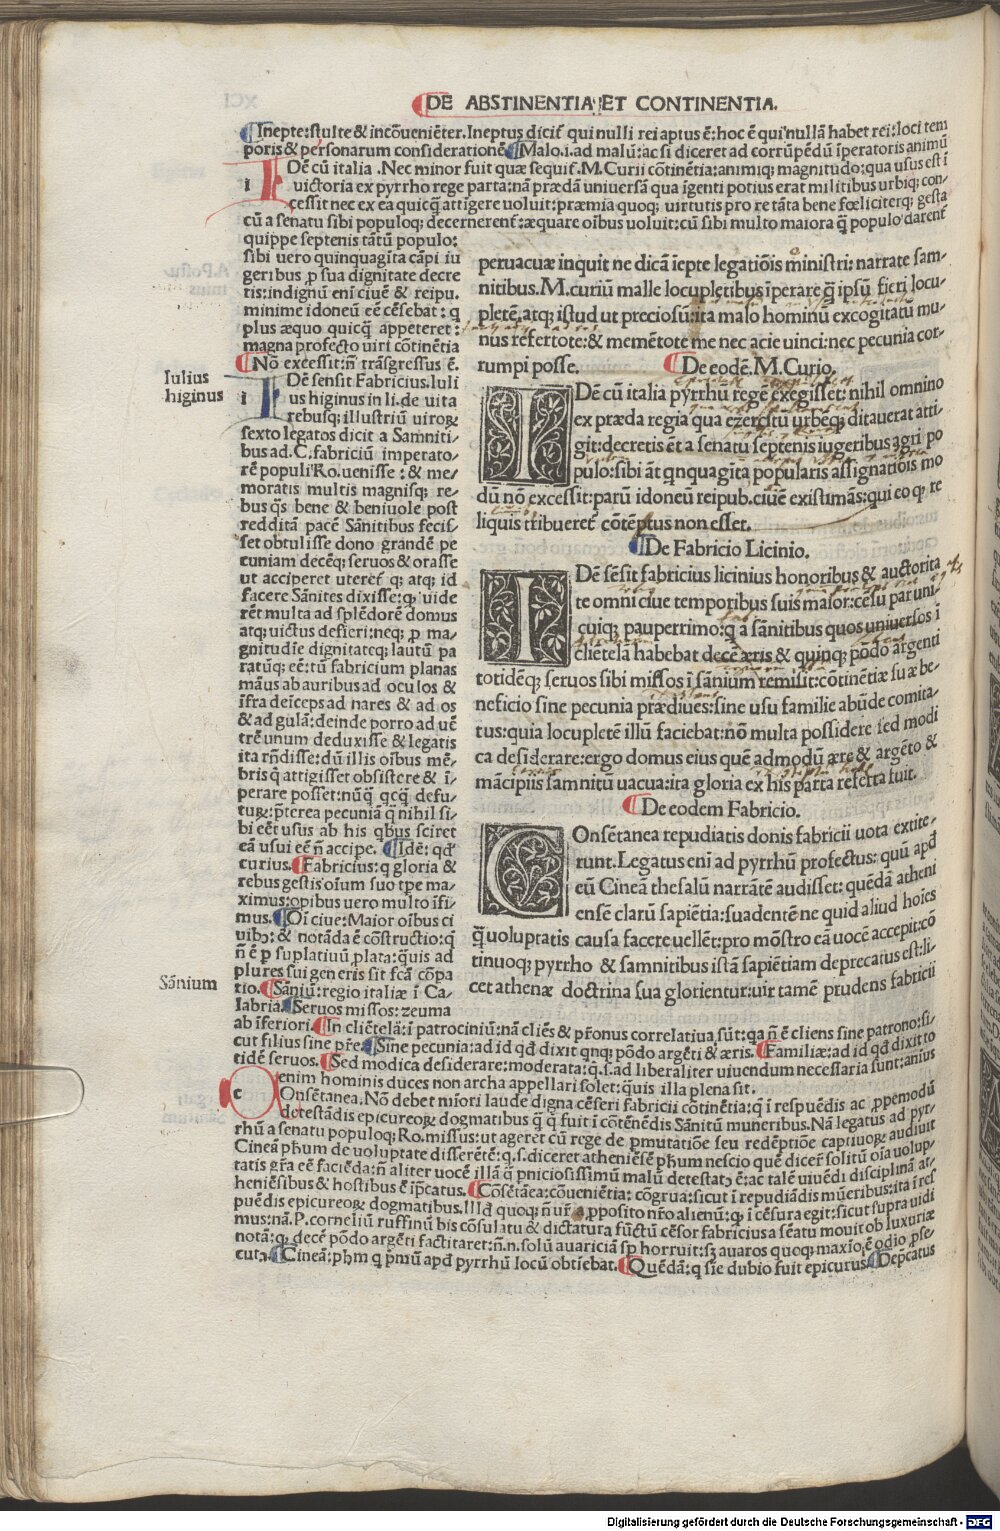 DE ABSTINENTIA ET CONTINENTIA.
Inepte:stulte & incōueniēter.Ineptus dicit̄ qui nulli rei aptus ē:hoc ē qui nullā habet rei:loci tem
poris & personarum considerationē Malo.i.ad malū:ac si diceret ad corrūpēdū īperatoris animū
i Dē cū italia .Nec minor fuit quæ sequit̄.M.Curii cōtinētia:animiq; magnitudo:qua usus est ī
uictoria ex pyrrho rege parta:nā prædā uniuersā qua īgenti potius erat militibus urbiq; con-
cessit nec ex ea quicq̄ attigere uoluit:præmia quoq; uirtutis pro re tāta bene fœliciterq; gesta
cū a senatu sibi populoq; decernerent̄:æquare oībus uoluit:cū sibi multo maiora q̄ populo darent̄
quippe septenis tātū populo:
sibi uero quinquagīta cāpi iu
geribus p sua dignitate decre
tis:indignū eni ciuē & reipu.
minime idoneū eē cēsebat: q
plus æquo quicq̄ appeteret:
magna profecto uiri cōtinētia
Nō excessit:n̄ trāsgressus ē.
Iulius
higinus
i Dē sensit Fabricius.Iuli
us higinus in li.de uita
rebusq; illustriū uiroꝝ
sexto legatos dicit a Samniti-
bus ad.C.fabriciū imperato-
rē populi Ro.uenisse: & me-
moratis multis magnisq; re-
bus q̄s bene & beniuole post
redditā pacē Sānitibus fecis-
set obtulisse dono grandē pe
cuniam decēq; seruos & orasse
ut acciperet uteret̄ q; atq; id
facere Sānites dixisse:q; uide
rēt multa ad splēdorē domus
atq; uictus defieri:neq; p ma-
gnitudīe dignitateq; lautū pa
ratūq; eē:tū fabricium planas
māus ab auribus ad oculos &
īfra deīceps ad nares & ad os
& ad gulā:deinde porro ad uē
trē unum deduxisse & legatis
ita rn̄disse:dū illis oībus mē-
bris q̄ attigisset obsistere & ī-
perare posset:nūq̄ qcq̄ defu-
tuꝝ:p̄terea pecuniā q̄ nihil si-
bi eēt usus ab his qbus sciret
eā usui eē n̄ accipe. Idē: qđ
curius.Fabricius:q gloria &
rebus gestis oīum suo tpe ma-
ximus:opibus uero multo īfi-
mus.Oī ciue:Maior oībus ci
uibꝫ:& notāda ē cōstructio:q̄
n̄ ē p suplatiuū plata:q̄uis ad
plures sui generis sit fcā cōpa
tio.Sāniū:regio italiæ ī Ca-
labria.Seruos missos:zeuma
Sānium
peruacuæ inquit ne dicā īepte legatiōis ministri: narrate sam-
nitibus.M.curiū malle locupletibus īperare q̄ ipsū fieri locu-
pletē.atq; istud ut preciosū:ita malo hominū excogitatū mu-
nus refertote:& memētote me nec acie uinci:nec pecunia cor-
rumpi posse. De eodē.M.Curio.
IDē cū italia pyrrhū regē exegisset: nihil omnino
ex præda regia qua exercitū urbēq; ditauerat atti-
git:decretis ēt a senatu septenis iugeribus agri po
pulo:sibi āt qnquagīta popularis assignatiōis mo
dū nō excessit:parū idoneū reipub.ciuē existimās:qui eo q; re
liquis tribueret̄ cōtēptus non esset.
De Fabricio Licinio.
IDē sēsit fabricius licinius honoribus & auctorita
te omni ciue temporibus suis maior:cēsu par uni-
cuiq; pauperrimo:q a sānitibus quos uniuersos ī
cliētela habebat decē æris & quinq; pōdo argenti
totidēq; seruos sibi missos ī sānium remisit:cōtinētiæ suæ be-
neficio sine pecunia prædiues:sine usu familie abūde comita-
tus:quia locupletē illū faciebat:nō multa possidere sed modi
ca desiderare:ergo domus eius quē admodū ære & argēto &
mācipiis samnitū uacua:ita gloria ex his parta referta fuit.
De eodem Fabricio.
COnsētanea repudiatis donis fabricii uota extite-
runt.Legatus eni ad pyrrhū profectus: quū apđ
eū Cineā thesalū narrātē audisset: quēdā atheni
ensē clarū sapiētia:suadentē ne quid aliud hoīes
q̄ uoluptatis causa facere uellēt:pro mōstro eā uocē accepit:cō
tinuoq; pyrrho & samnitibus istā sapiētiam deprecatus est:li-
cet athenæ doctrina sua glorientur:uir tamē prudens fabricii
ab īferiori.In cliētela:ī patrociniū:nā cliēs & pr̄onus correlatiua sūt:qa n̄ ē cliens sine patrono:si-
cut filius sine pr̄e.Sine pecunia:ad id qđ dixit qnq; pōdo argēti & æris.Familiæ:ad id qđ dixit to
tidē seruos.Sed modica desiderare:moderata:q.s.ad liberaliter uiuendum necessaria sunt:anius
enim hominis duces non archa appellari solet:q̄uis illa plena sit.
c Onsētanea.Nō debet miōri laude digna cēseri fabricii cōtinētia:q ī respuēdis ac ppemodū
detestādis epicureoꝝ dogmatibus q̄ q̄ fuit ī cōtēnēdis Sānitū muneribus.Nā legatus ad pyr-
rhū a senatu populoq; Ro.missus:ut ageret cū rege de pmutatiōe seu redēptiōe captiuoꝝ audiuit
Cineā ph̄um de uoluptate disserētē:q.s.diceret atheniēsē ph̄um nescio quē dicer̄ solitū oīa uolup-
tatis gr̄a eē faciēda:n̄ aliter uocē illā q̄ pniciosissimū malū detestatꝫ ē:ac talē uiuēdi disciplinā at-
heniēsibus & hostibus ē īp̄catus.Cōsētāea:cōueniētia:cōgrua:sicut ī repudiādis mūeribus:ita ī res
puēdis epicureoꝝ dogmatibus.Illđ quoq; n̄ ur̄ apposito nr̄o alienū:q; ī cēsura egit:sicut supra uidi
mus:nā.P.corneliū ruffinū bis cōsulatu & dictatura fūctū cēsor fabricius a sēatu mouit ob luxuriæ
notā:q; decē pōdo argēti factitaret:n̄.n.solū auariciā sp horruit:sꝫ auaros quoq; maxīo ē odio pse-
cutꝫ.Cineā:ph̄m q p̄mū apđ pyrrhū locū obtiebat.Quēdā:q sie dubio fuit epicurus.Dep̄catus
Digitalisierung gefördert durch die Deutsche Forschungsgemeinschaft - DFG